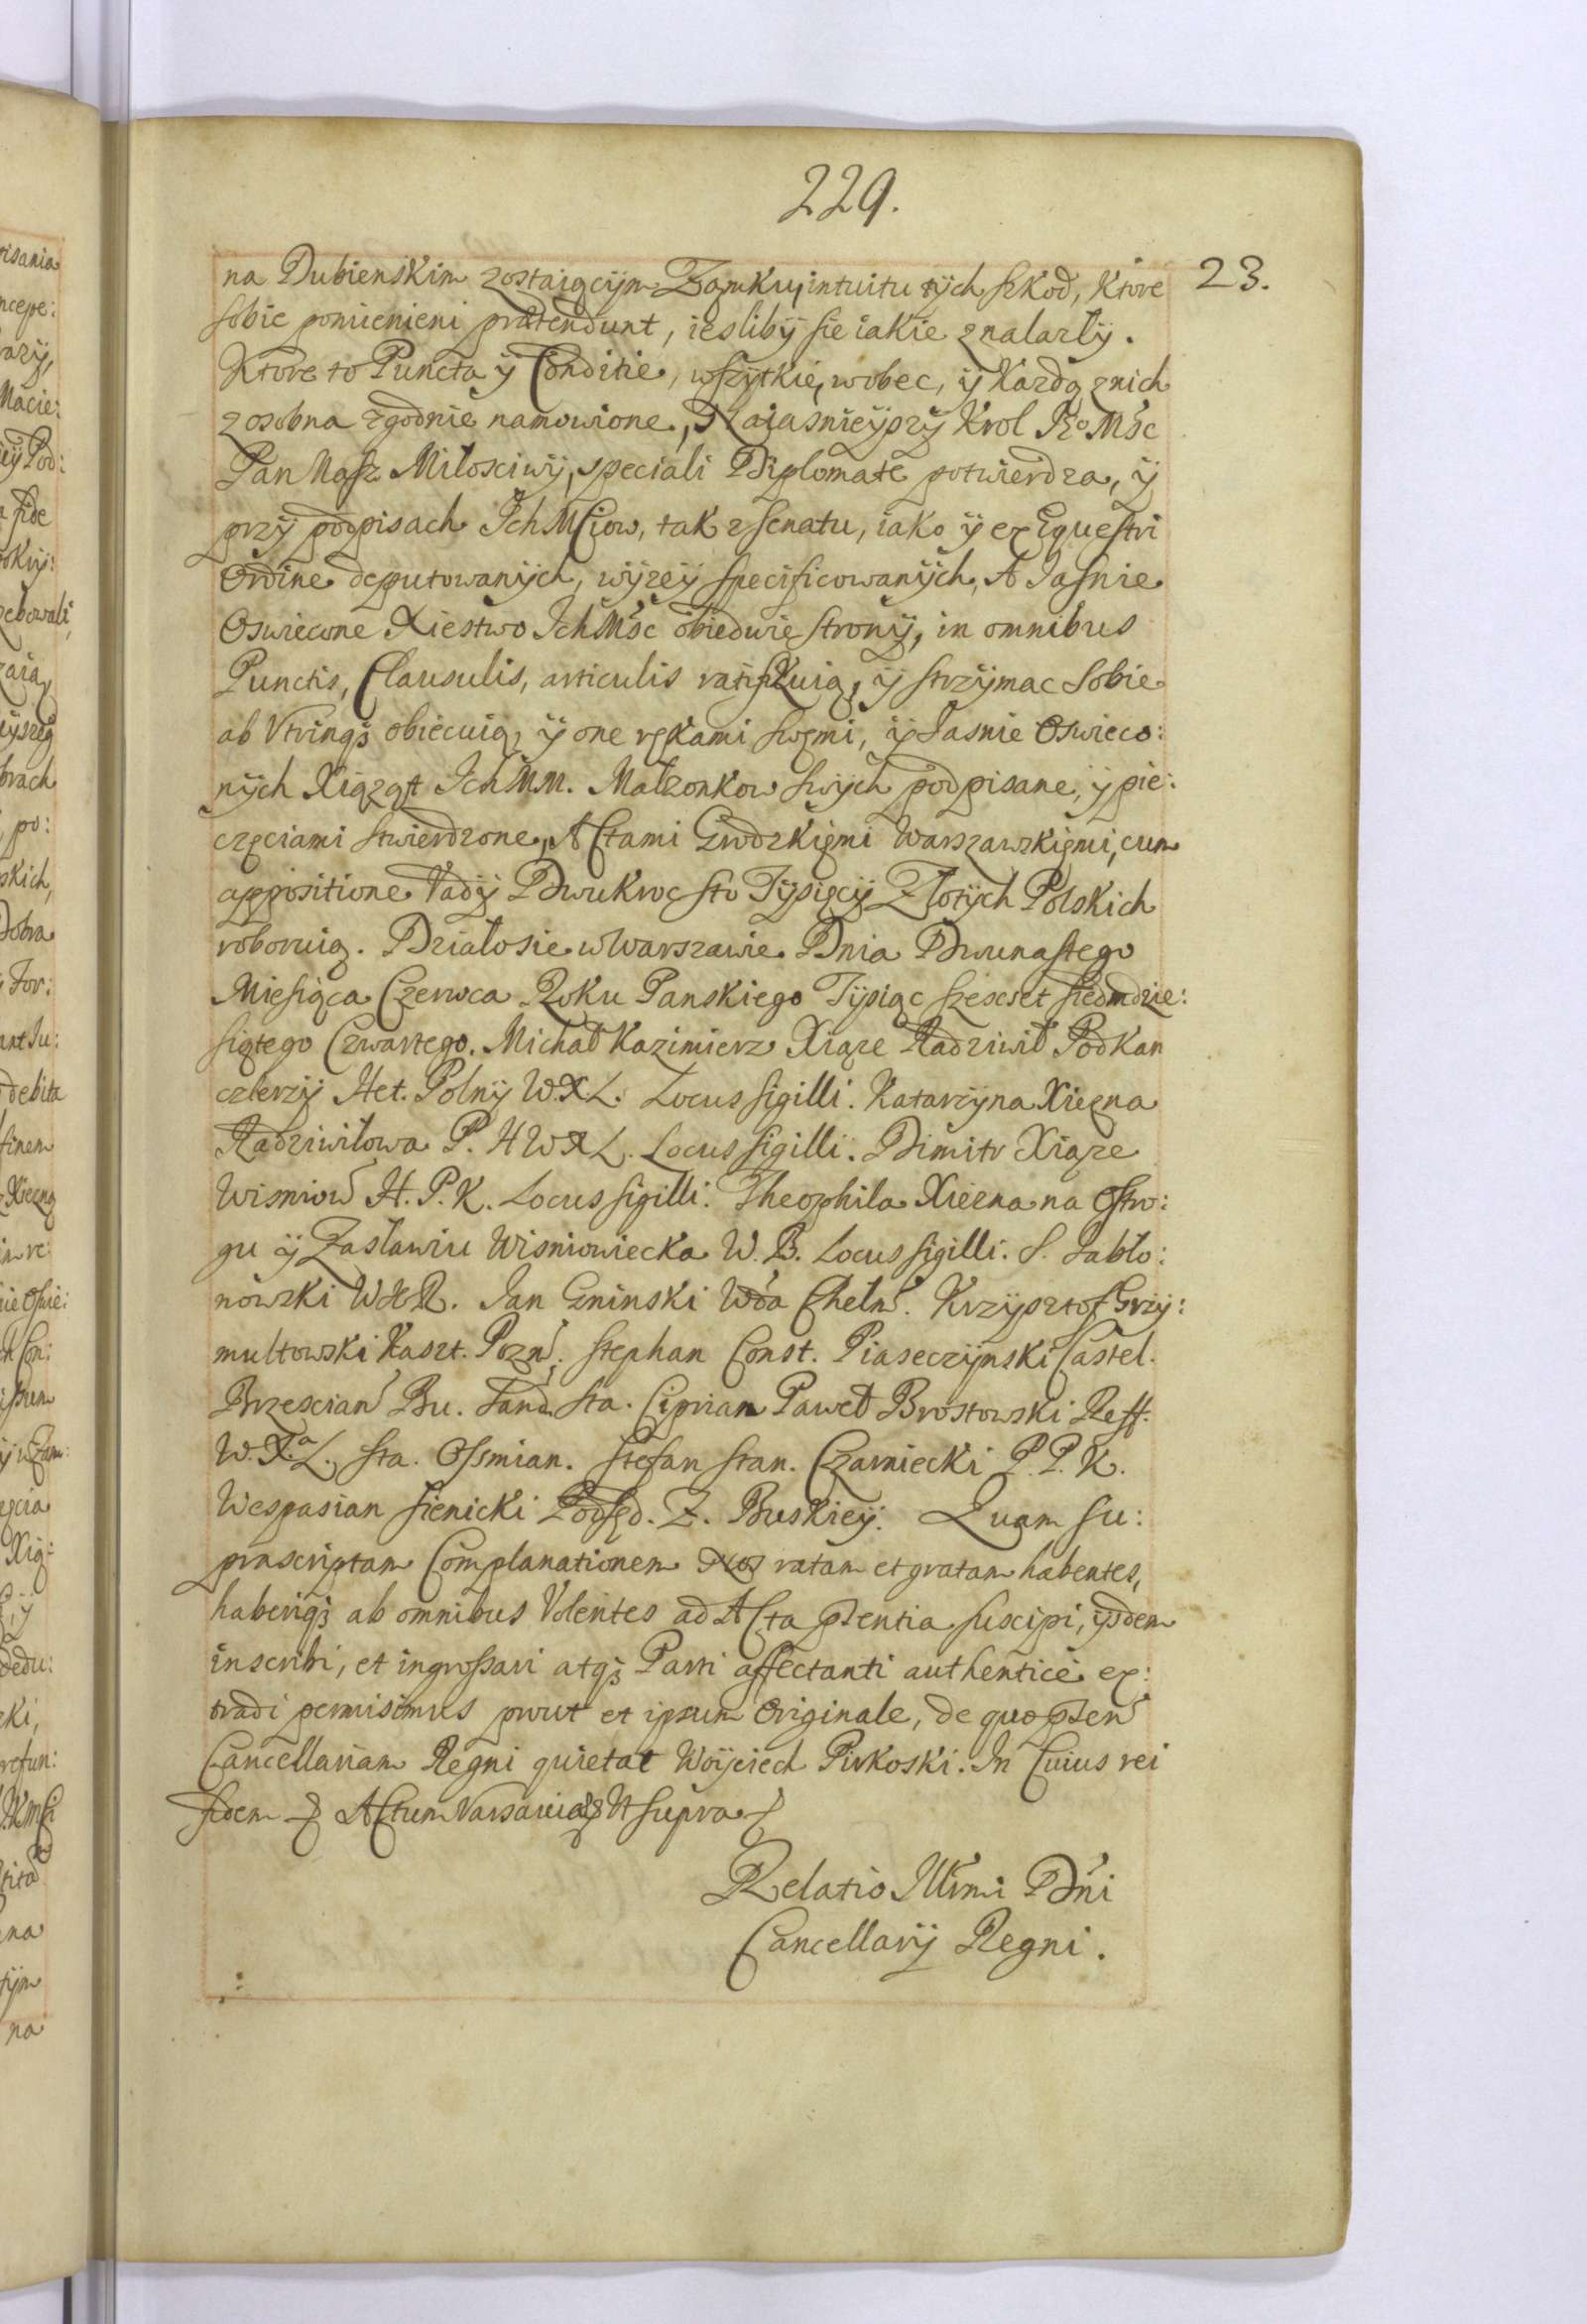 229.
23.
na Dubienskim zostaiącÿm Zamku, intuitu tÿch szkod, ktore
sobie pomienieni prætendunt, iesliбÿ sie iakie znalazłÿ.
Ktore to Puncta ÿ Conditie, wszÿtkie, wobec, ÿ kazdą znich
zosobna zgodnie namowione, Naiasnieÿszÿ Krol Jego Mśc
Pan Nasz Miłosciwÿ, speciali Diplomate potwierdza, ÿ
przÿ podpisach Ich MCiow, tak z Senatu, iako ÿ ex Equestri
Ordine deputowanÿch, wÿzeÿ specificowanÿch, A Jasnie
Oswiecone Xiestwo Ich Mśc obiedwie stronÿ, in omnibus
Punctis, Clausulis, articulis ratifikuią, ÿ strzÿmac sobie
ab Vtrinqꝫ obiecuią, ÿ one rękami swęmi, ÿ Jasnie Oswieco:
nÿch Xiąząt Ich MM. Małzonkow swÿch podpisane, ÿ pie:
częciami stwierdzone, Actami Grodzkięmi Warszawskięmi, cum
appositione Vadÿ Dwukroc sto Tÿsięcÿ Złotÿch Polskich
roboruią. Działosie w Warszawie Dnia Dwunastego
Miesiąca Czerwca Roku Panskiego Tÿsiąc szescset siedmdzie:
siątego Czwartego. Michał Kazimierz Xiąze Radziwił Podkan
clerzÿ Het. Polnÿ W.X.L. Locus sigilli. Katarzÿna Xięzna
Radziwiłowa P. H W X L. Locus sigilli. Dimitr Xiąze
Wisniow H. P. K. Locus sigilli. Theophila Xiezna na Ostro:
gu ÿ Zasławiu Wisniowiecka W. B. Locus sigilli. S. Jabło:
nowski W H R. Jan Gninski Wda Chełm. Krzÿsztof Grzÿ:
mułtowski Kaszt. Pozn. Stephan Const. Piaseczÿnski Castel.
Brzescian Bu. Land. Sta. Ciprian Paweł Brostowski Reff.
W. Xa L. Sta. Ossmian. Stefan Stan. Czarniecki P. P. K.
Wespasian Sienicki Podsęd. Z. Buskieÿ. Quam su:
præscriptam Complanationem Nos ratam et gratam habentes,
haberiqꝫ ab omnibus Volentes ad Acta pſentia suscipi, ijsdem
inscribi, et ingrossari atqꝫ Parti affectanti authenticè ex:
tradi permisimus prout et ipsum Originale, de quo pſen
Cancellariam Regni quietat Woÿciech Pirkoski. In Cuius rei
fidem Actum Varsaviæ Ut supra
Relatio Illmi Dńi
Cancellarÿ Regni.